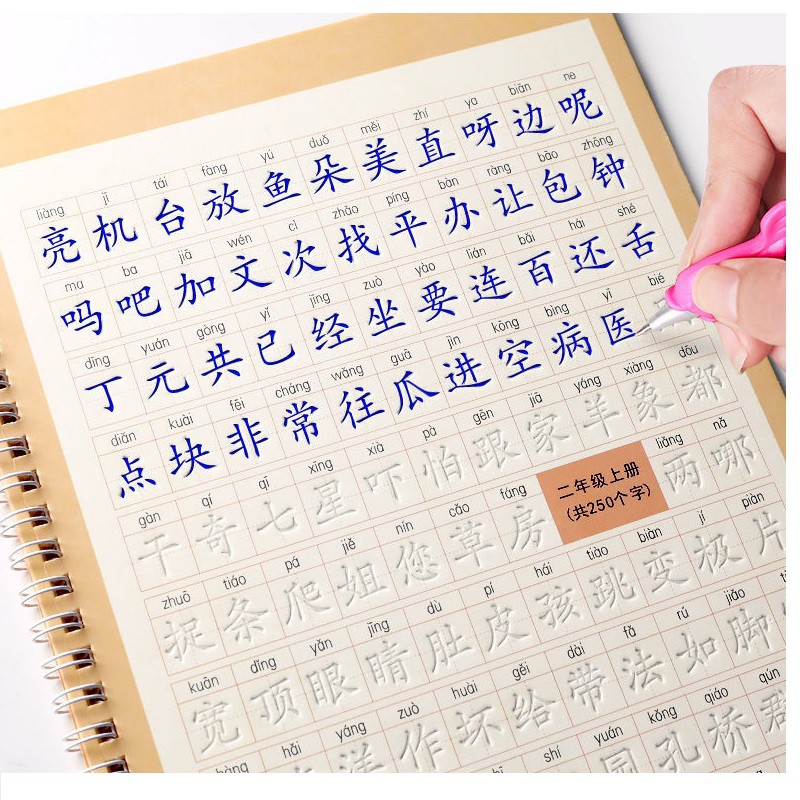 liàng jī tái fàng yú duǒ měi zhí ya biān ne
亮 机 台 放 鱼 朵 美 直 呀 边 呢
ma ba jiā wén cì zhǎo píng bàn ràng bāo zhōng
吗 吧 加 文 次 找 平 办 让 包 钟
dīng yuán gòng yǐ jīng zuò yào lián bǎi hái shé
丁 元 共 已 经 坐 要 连 百 还 舌
diǎn kuài fēi cháng wǎng guā jìn kōng bìng yī bié
点 块 非 常 往 瓜 进 空 病 医
gàn qí qī xīng xià pà gēn jiā yáng xiàng dōu
干 奇 七 星 吓 怕 跟 家 羊 象 都
zhuō tiáo pá jiě nín cǎo fáng liǎng nǎ
捉 条 爬 姐 您 草 房 两 哪
二年级上册
(共250个字)
kuān dǐng yǎn jīng dù pí hái tiào biàn jí piàn
宽 顶 眼 睛 肚 皮 孩 跳 变 极 片
hǎi yáng zuò huài gěi dài fǎ rú jiǎo
洋 作 坏 给 带 法 如 脚
shí yuán kǒng qiáo qún
园 孔 桥 群